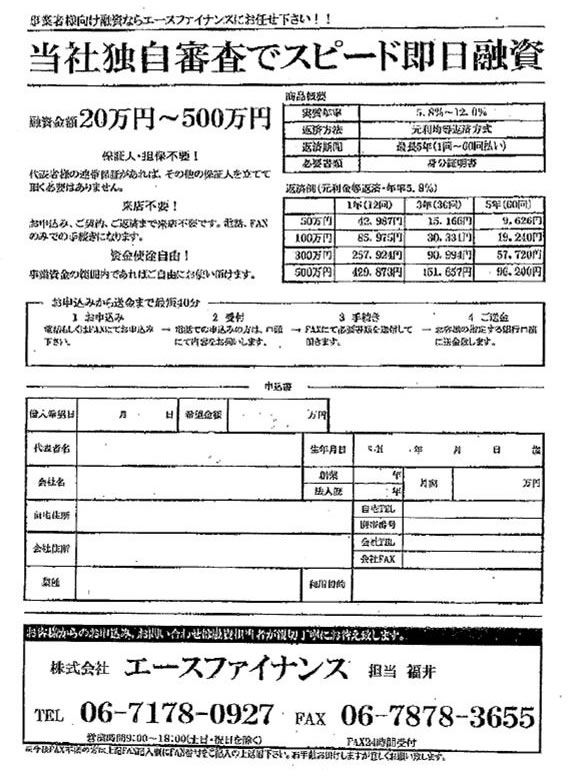 事業者様向け融資ならエースファイナンスにお任せ下さい！！
当社独自審査でスピード即日融資
融資金額20万円～500万円
保証人・担保不要！
代表者様の連帯保証があれば、その他の保証人を立てて
頂く必要はありません。
来店不要！
お申込み、ご契約、ご返済まで来店不要です。電話、FAX
のみでの手続きになります。
資金使途自由！
事業資金の範囲内であればご自由にお使い頂けます。
商品概要
実質年率 5.8%～12.0%
返済方法 元利均等返済方式
返済期間 最長5年(1回～60回払い)
必要書類 身分証明書
返済例(元利金等返済・年率5.8%)
1年(12回) 3年(36回) 5年(60回)
50万円 42,987円 15,166円 9,626円
100万円 85,975円 30,331円 19,240円
300万円 257,924円 90,994円 57,720円
500万円 429,873円 151,657円 96,200円
お申込みから送金まで最短40分
1 お申込み
電話もしくはFAXにてお申込み
下さい。
2 受付
→ 電話での申込みの方は、口頭
にて内容をお伺いします。
3 手続き
→ FAXにて必要書類を送付して
頂きます。
4 ご送金
→ お客様の指定する銀行口座
に送金致します。
申込書
借入希望日 月 日 希望金額 万円
代表者名 生年月日 年 月 日 歳
会社名 創業 年 月商 万円
法人歴 年
自宅住所 自宅TEL
携帯番号
会社住所 会社TEL
会社FAX
業種 利用目的
お客様からのお申込み、お問い合わせは融資担当者が親切丁寧にお答え致します。
株式会社 エースファイナンス 担当 福井
TEL 06-7178-0927 FAX 06-7878-3655
営業時間9:00～18:00(土日・祝日を除く) FAX24時間受付